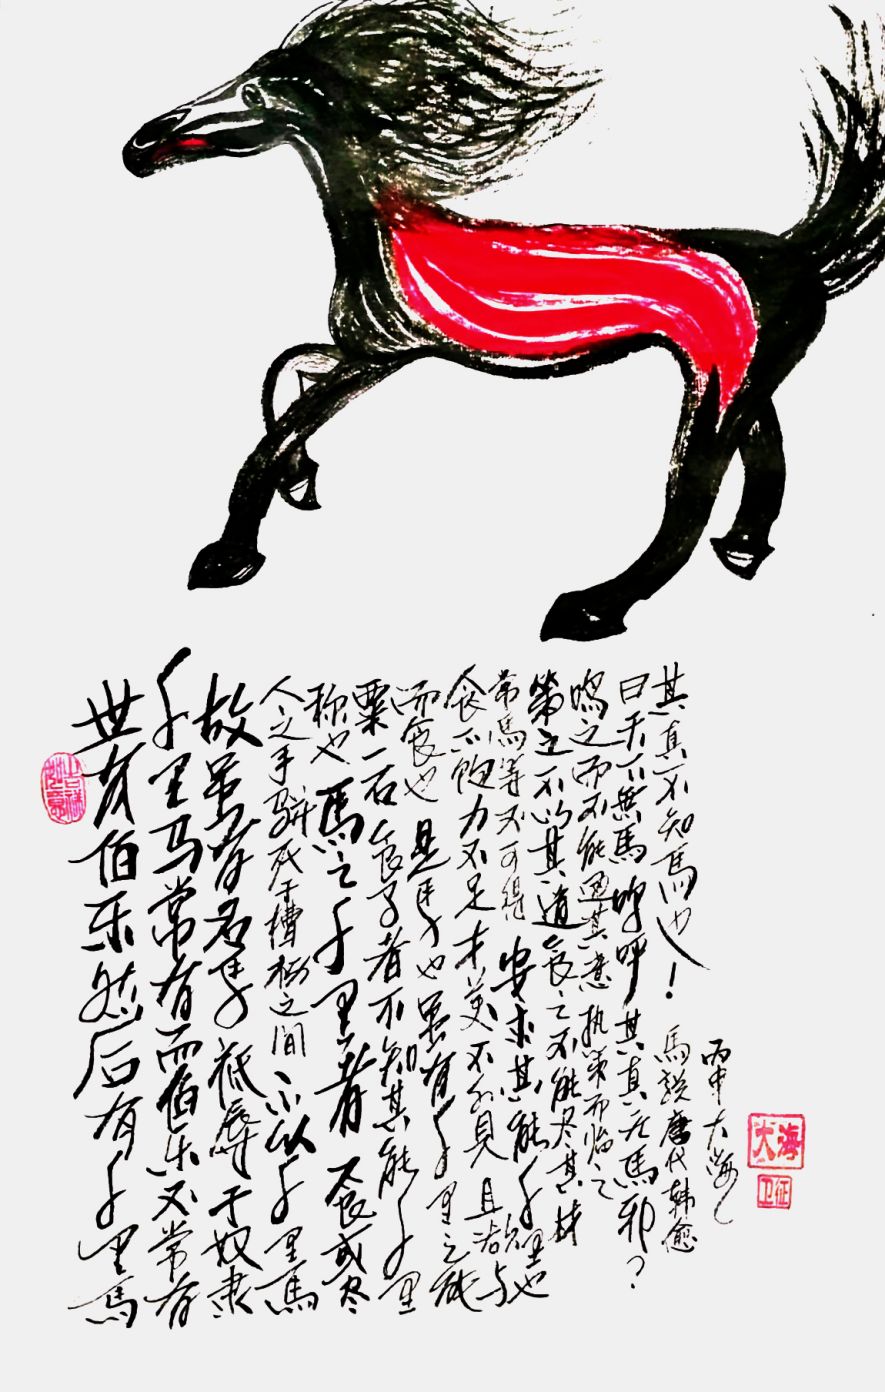 世有伯乐然后有千里馬
千里马常有而伯乐不常有
故虽有名馬祗辱于奴隶
人之手骈死于槽枥之间不以千里馬
称也馬之千里者一食或尽
粟一石食馬者不知其能千里
而食也是馬也虽有千里之能
食不饱力不足才美不外見且欲与
常馬等不可得安求其能千里也
策之不以其道食之不能尽其材
鸣之而不能通其意执策而临之
曰天下無馬呜呼其真无馬邪？
其真不知馬也！
馬説唐代韩愈
丙申大海
吉祥如意
大海
卫征